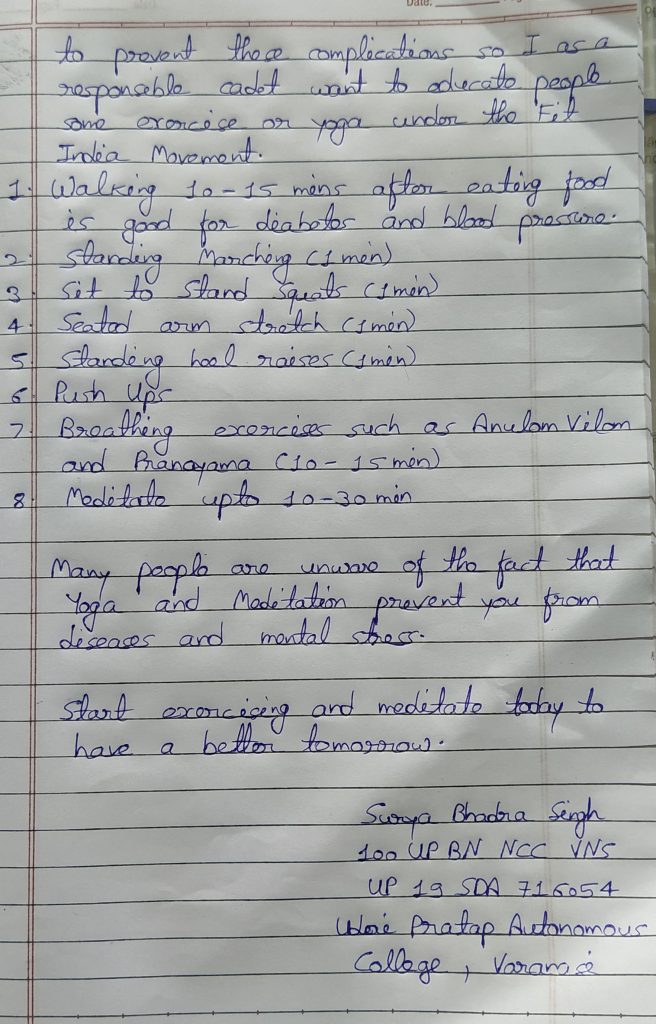 Date:
to prevent these complications so I as a
responsible cadet want to educate people
some exercise or yoga under the Fit
India Movement.
1. Walking 10-15 mins after eating food
is good for diabetes and blood pressure.
2. Standing Marching (1 min)
3. Sit to Stand Squats (1 min)
4. Seated arm stretch (1 min)
5. Standing heel raises (1 min)
6. Push Ups
7. Breathing exercises such as Anulom Vilom
and Pranayama (10-15 min)
8. Meditate upto 10-30 min
Many people are unware of the fact that
Yoga and Meditation prevent you from
diseases and mental stress.
Start exercising and meditate today to
have a better tomorrow.
Surya Bhadra Singh
100 UP BN NCC VNS
UP 19 SDA 716054
Pratap Autonomous
College, Varanasi